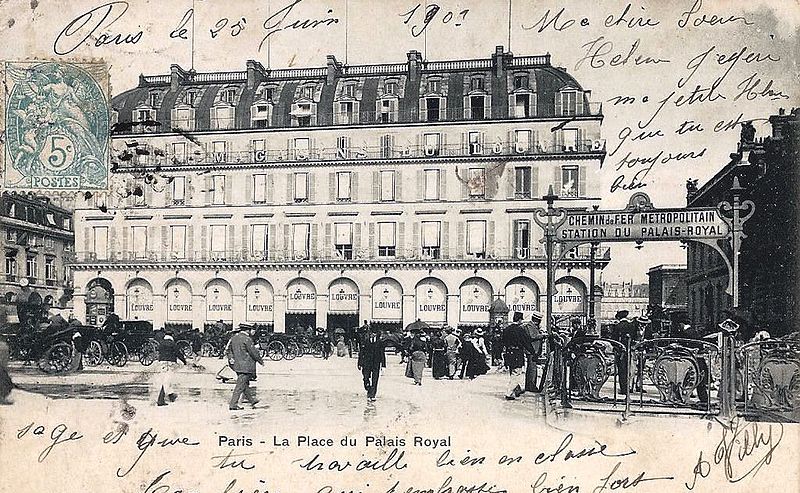 Paris le 25 Juin 190
Ma chère Soeur
Helen j'espère
ma petite
que tu est
toujours
bien
5c
POSTES
CHEMIN DE FER MÉTROPOLITAIN
STATION DU PALAIS-ROYAL
LOUVRE LOUVRE LOUVRE LOUVRE LOUVRE LOUVRE LOUVRE LOUVRE LOUVRE LOUVRE LOUVRE
Paris - La Place du Palais Royal
sage et que
tu travaille bien en classe
bien qui t'embrasse bien fort